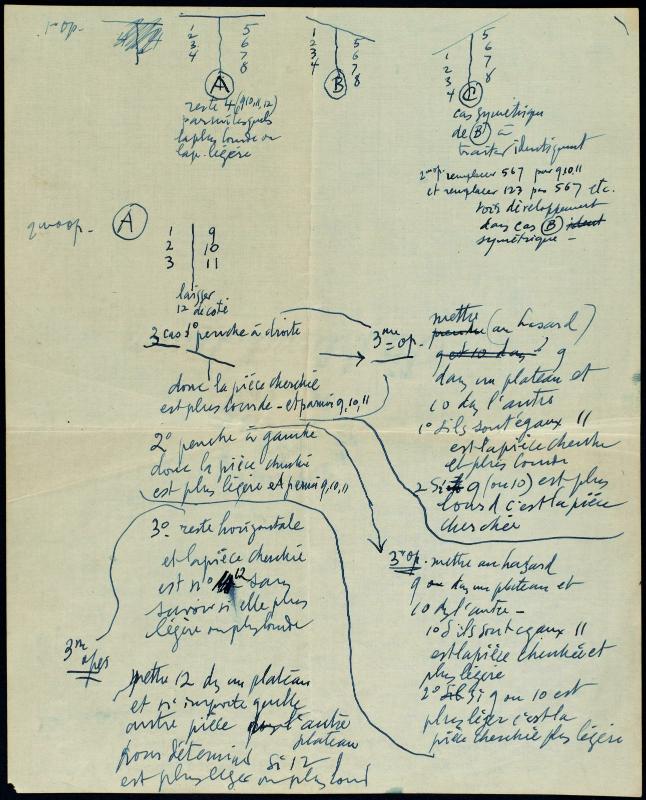 1re op.
1 5
2 6
3 7
4 8
A
reste 4 (9,10,11,12)
parmi lesquels
la plus lourde ou
la p. légère
1 5
2 6
3 7
4 8
B
5
1 6
2 7
3 8
4
C
cas symétrique
de B à
traiter identiquement
2me op. remplacer 567 par 9,10,11
et remplacer 123 par 567 etc.
voir développement
dans cas B
symétrique –
A
1 9
2 10
3 11
laisser
12 de côté
3 cas 1° penche à droite
donc la pièce cherchée
est plus lourde – et parmi 9,10,11
2° penche à gauche
donc la pièce cherchée
est plus légère et parmi 9,10,11
3° reste horizontale
et la pièce cherchée
est n° 12 sans
savoir si elle plus
légère ou plus lourde
3me
mettre 12 ds un plateau
et n'importe quelle
autre pièce l'autre
plateau
pour déterminer si 12
est plus léger ou plus lourd
3me op. mettre (au hasard)
9
dans un plateau et
10 ds l'autre
1° s'ils sont égaux 11
est la pièce cherchée
et plus lourde
2 Si 9 (ou 10) est plus
lourd c'est la pièce
cherchée
3me op. mettre au hasard
9 ds un plateau et
10 ds l'autre –
1° s'ils sont égaux 11
est la pièce cherchée et
plus légère
2° Si 9 ou 10 est
plus léger c'est la
pièce cherchée plus légère